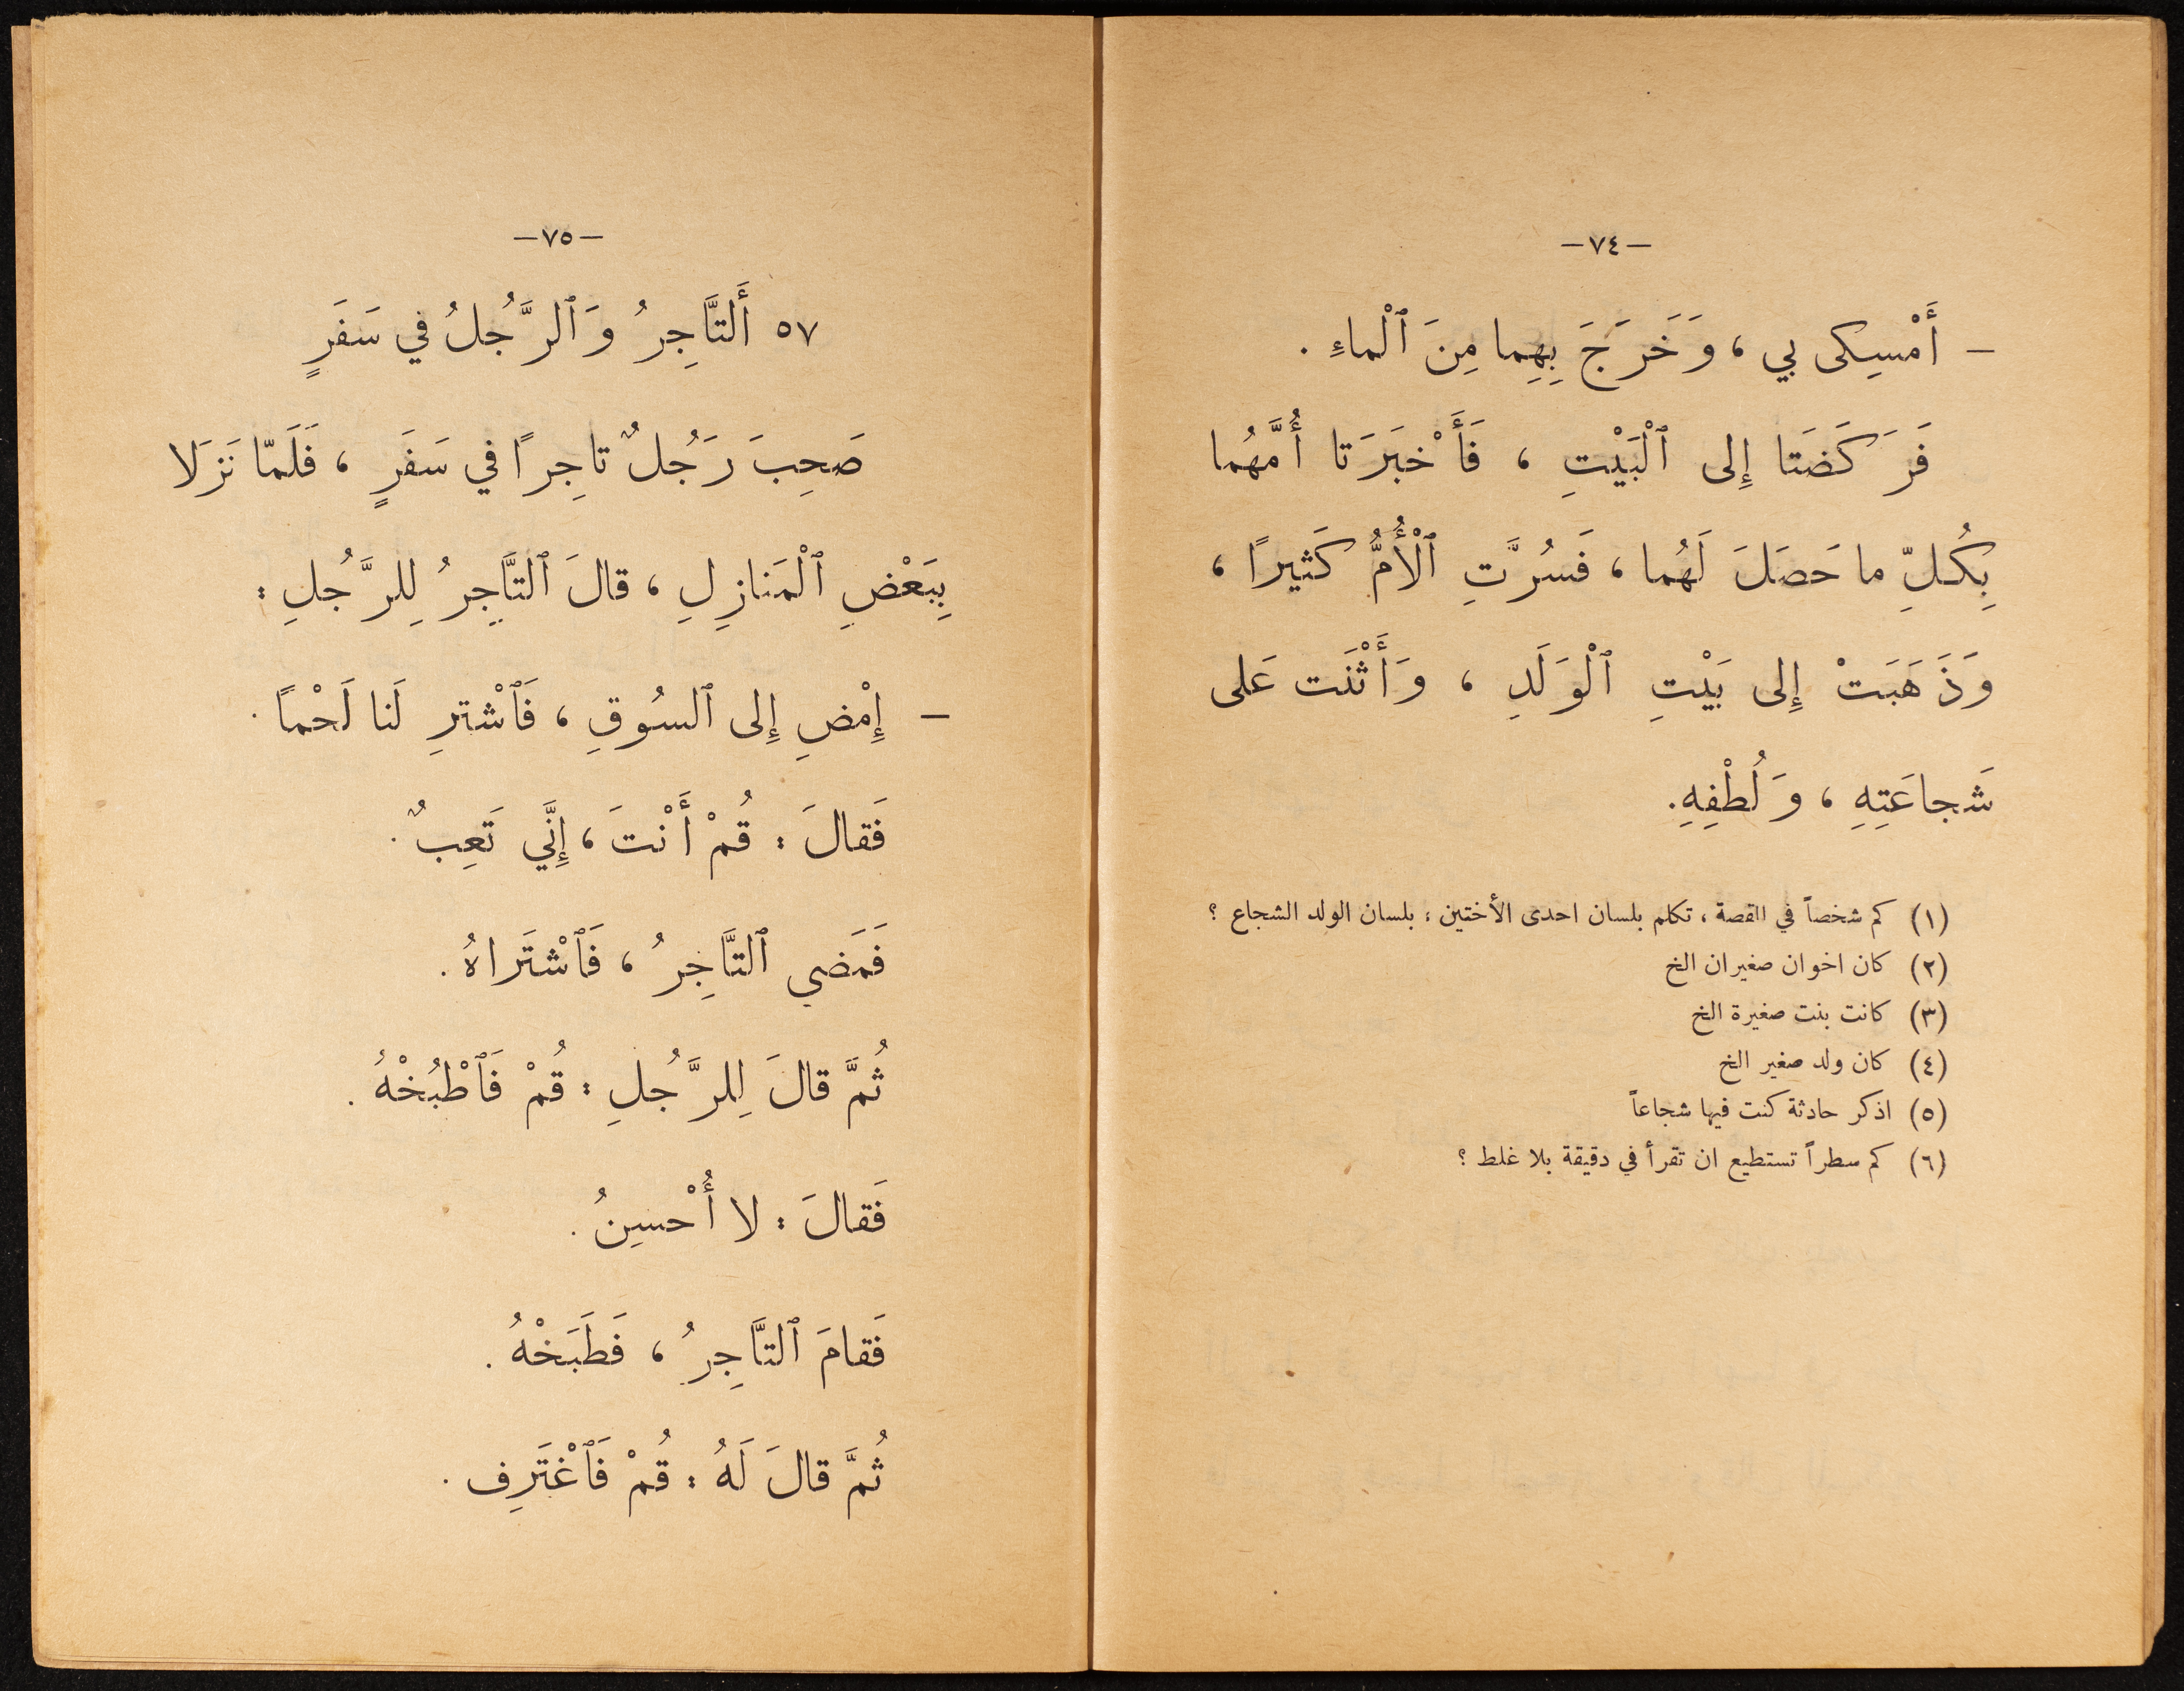 —٧٤—
— أَمْسِكى بي ، وَخَرَجَ بِهِما مِنَ ٱلْماءِ .
فَرَكَضَتا إِلى ٱلْبَيْتِ ، فَأَخْبَرَتا أُمَّهُما
بِكُلِّ ما حَصَلَ لَهُما ، فَسُرَّتِ ٱلْأُمُّ كَثيرًا ،
وَذَهَبَتْ إِلى بَيْتِ ٱلْوَلَدِ ، وَأَثْنَت عَلى
شَجاعَتِهِ ، وَلُطْفِهِ .
(١) كم شخصاً في القصة ، تكلم بلسان احدى الأختين ، بلسان الولد الشجاع ؟
(٢) كان اخوان صغيران الخ
(٣) كانت بنت صغيرة الخ
(٤) كان ولد صغير الخ
(٥) اذكر حادثة كنت فيها شجاعاً
(٦) كم سطراً تستطيع ان تقرأ في دقيقة بلا غلط ؟
—٧٥—
٥٧ أَلتَّاجِرُ وَٱلرَّجُلُ في سَفَرٍ
صَحِبَ رَجُلٌ تاجِرًا في سَفَرٍ ، فَلَمّا نَزَلا
بِبَعْضِ ٱلْمَنازِلِ ، قالَ ٱلتَّاجِرُ لِلرَّجُلِ :
— إِمْضِ إِلى ٱلسُوقِ ، فَٱشْتَرِ لَنا لَحْمًا .
فَقالَ : قُمْ أَنْتَ ، إِنَّي تَعِبٌ .
فَمَضي ٱلتَّاجِرُ ، فَٱشْتَراهُ .
ثُمَّ قالَ لِلرَّجُلِ : قُمْ فَٱطْبُخْهُ .
فَقالَ : لا أُحْسِنُ .
فَقامَ ٱلتَّاجِرُ ، فَطَبَخْهُ .
ثُمَّ قالَ لَهُ : قُمْ فَٱغْتَرِف .